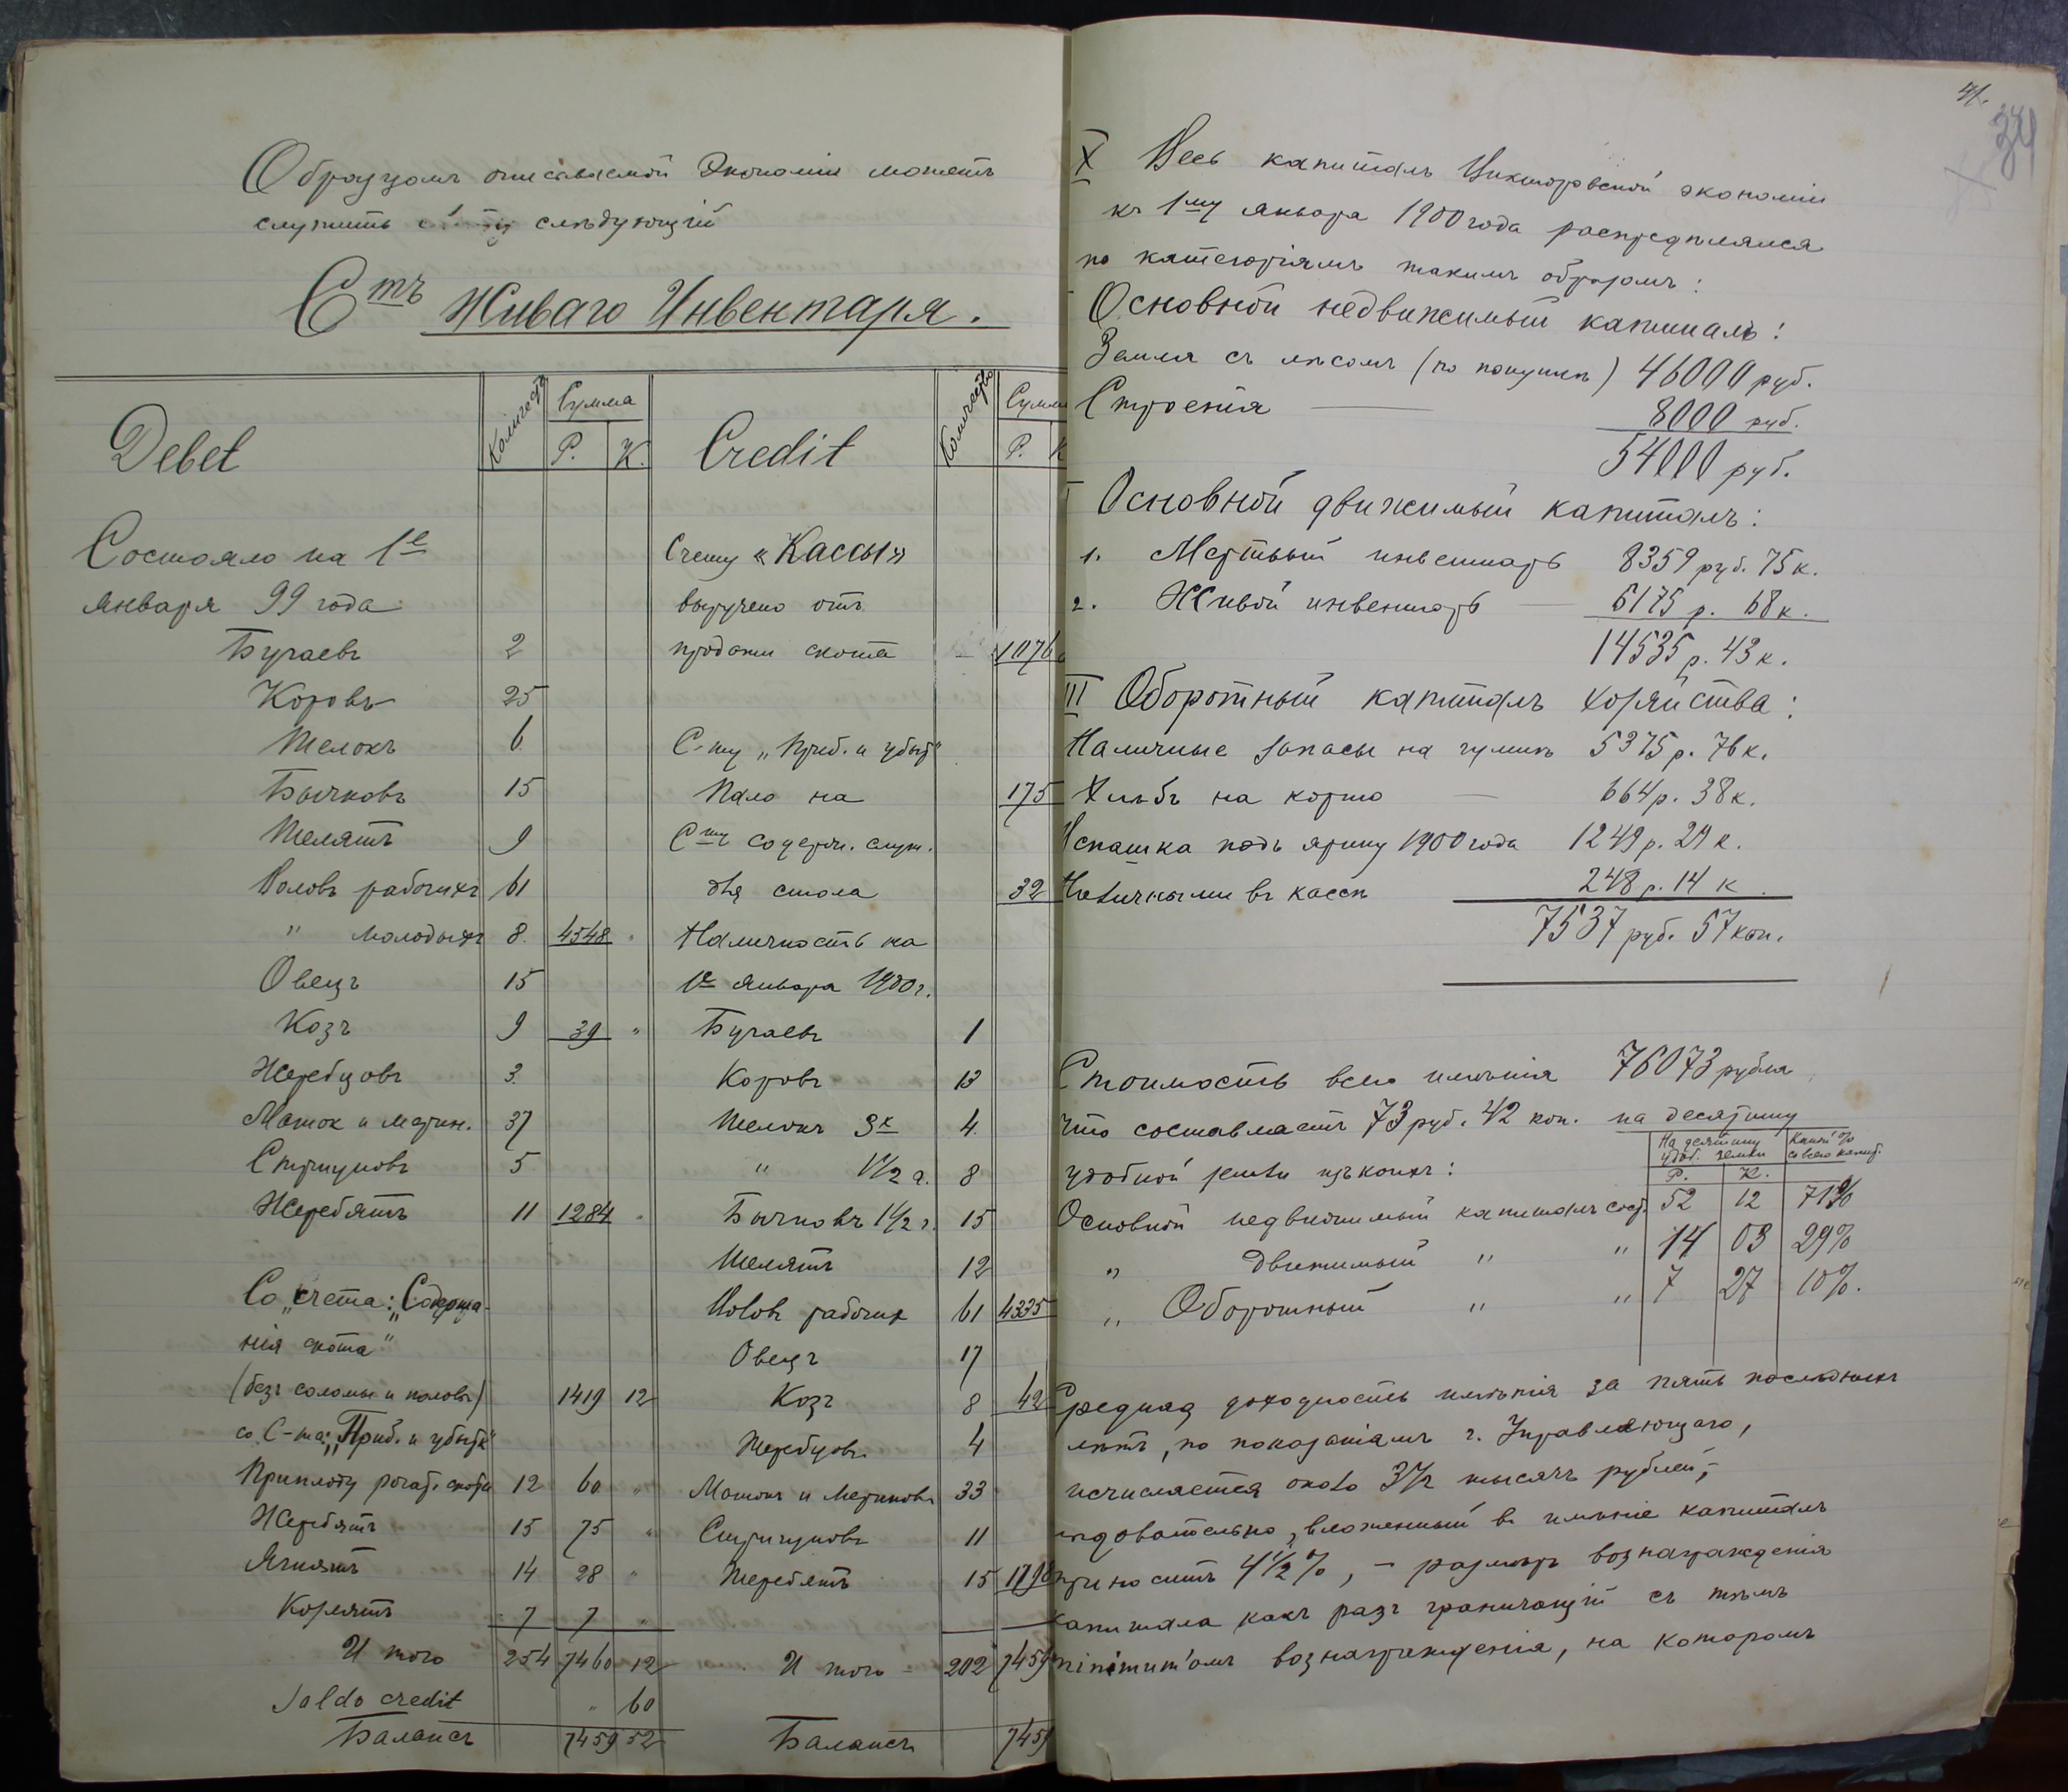 Образцомъ описываемой Экономіи можетъ
служить слѣдующій
Стъ Живаго Инвентаря.
Debet Количество Сумма Р. К. Credit Количество Сумма Р. К
Состояло на 1е
января 99 года
Бугаевъ 2
Коровъ 25
Телокъ 6
Бычковъ 15
Телятъ 9
Воловъ рабочихъ 61
" молодыхъ 8. 4548 "
Овецъ 15
Козъ 9 39 "
Жеребцовъ 3.
Маток и мерин. 37
Стригуновъ 5
Жеребятъ 11 1284 "
Со счета: „Содержа-
нія скота"
(безъ соломы и половы) 1419 12
со С-та: „Приб. и убытк"
Приплоду рогат. скота 12 60 "
Жеребятъ 15 75 "
Ягнятъ 14 28 "
Козлятъ 7 7 "
И того 254 7460 12
Saldo credit " 60
Балансъ 7459 52
Счету «Кассы»
выручено отъ
продажи скота - 1076
С-ту „Приб. и убыт"
Пало на 175
Сту содерж. служ.
для стола 32
Наличность на
1е января 1900 г.
Бугаевъ 1
Коровъ 13
Телокъ 3х 4.
" 1 1/2 г. 8
Бычковъ 1 1/2 г. 15
Телятъ 12
Воловъ рабочихъ 61 4335
Овецъ 17
Козъ 8 42
Жеребцовъ 4
Матокъ и Мериновъ 33
Стригуновъ 11
Жеребятъ 15 1798
И того - 202 7459
Балансъ 7459
41.
34
X Весь капиталъ Викторовской экономіи
къ 1му января 1900 года распредѣлялся
по категоріямъ такимъ образомъ:
Основной недвижимый капиталъ:
Земля съ лѣсомъ (по покупкѣ) 46000 руб.
Строенія 8000 руб.
54000 руб.
Основной движимый капиталъ:
1. Мертвый инвентарь 8359 руб. 75 к.
2. Живой инвентарь 6175 р. 68 к.
14535 р. 43 к.
III Оборотный капиталъ хозяйства:
Наличные запасы на гумнѣ 5375 р. 76 к.
Хлѣбъ на кормъ 664 р. 38 к.
Вспашка подъ ярину 1900 года 1249 р. 29 к.
Наличными въ кассѣ 248 р. 14 к.
7537 руб. 57 коп.
Стоимость всего имѣнія 76073 рубля
что составляетъ 73 руб. 42 коп. на десятину
удобной земли изъ коихъ: На десятину удоб. земли Р. К. Какой % со всего капит.
Основной недвижимый капиталъ сост. 52 12 71%
" движимый " " 14 03 29%
" Оборотный " " 7 27 10%.
Средняя доходность имѣнія за пять послѣднихъ
лѣтъ, по показаніямъ г. Управляющаго,
исчисляется около 3 1/2 тысячъ рублей;
слѣдовательно, вложенный въ имѣніе капиталъ
приноситъ 4 1/2 %, - размѣръ вознагражденія
капитала какъ разъ граничащій съ тѣмъ
minimum'омъ вознагражденія, на которомъ